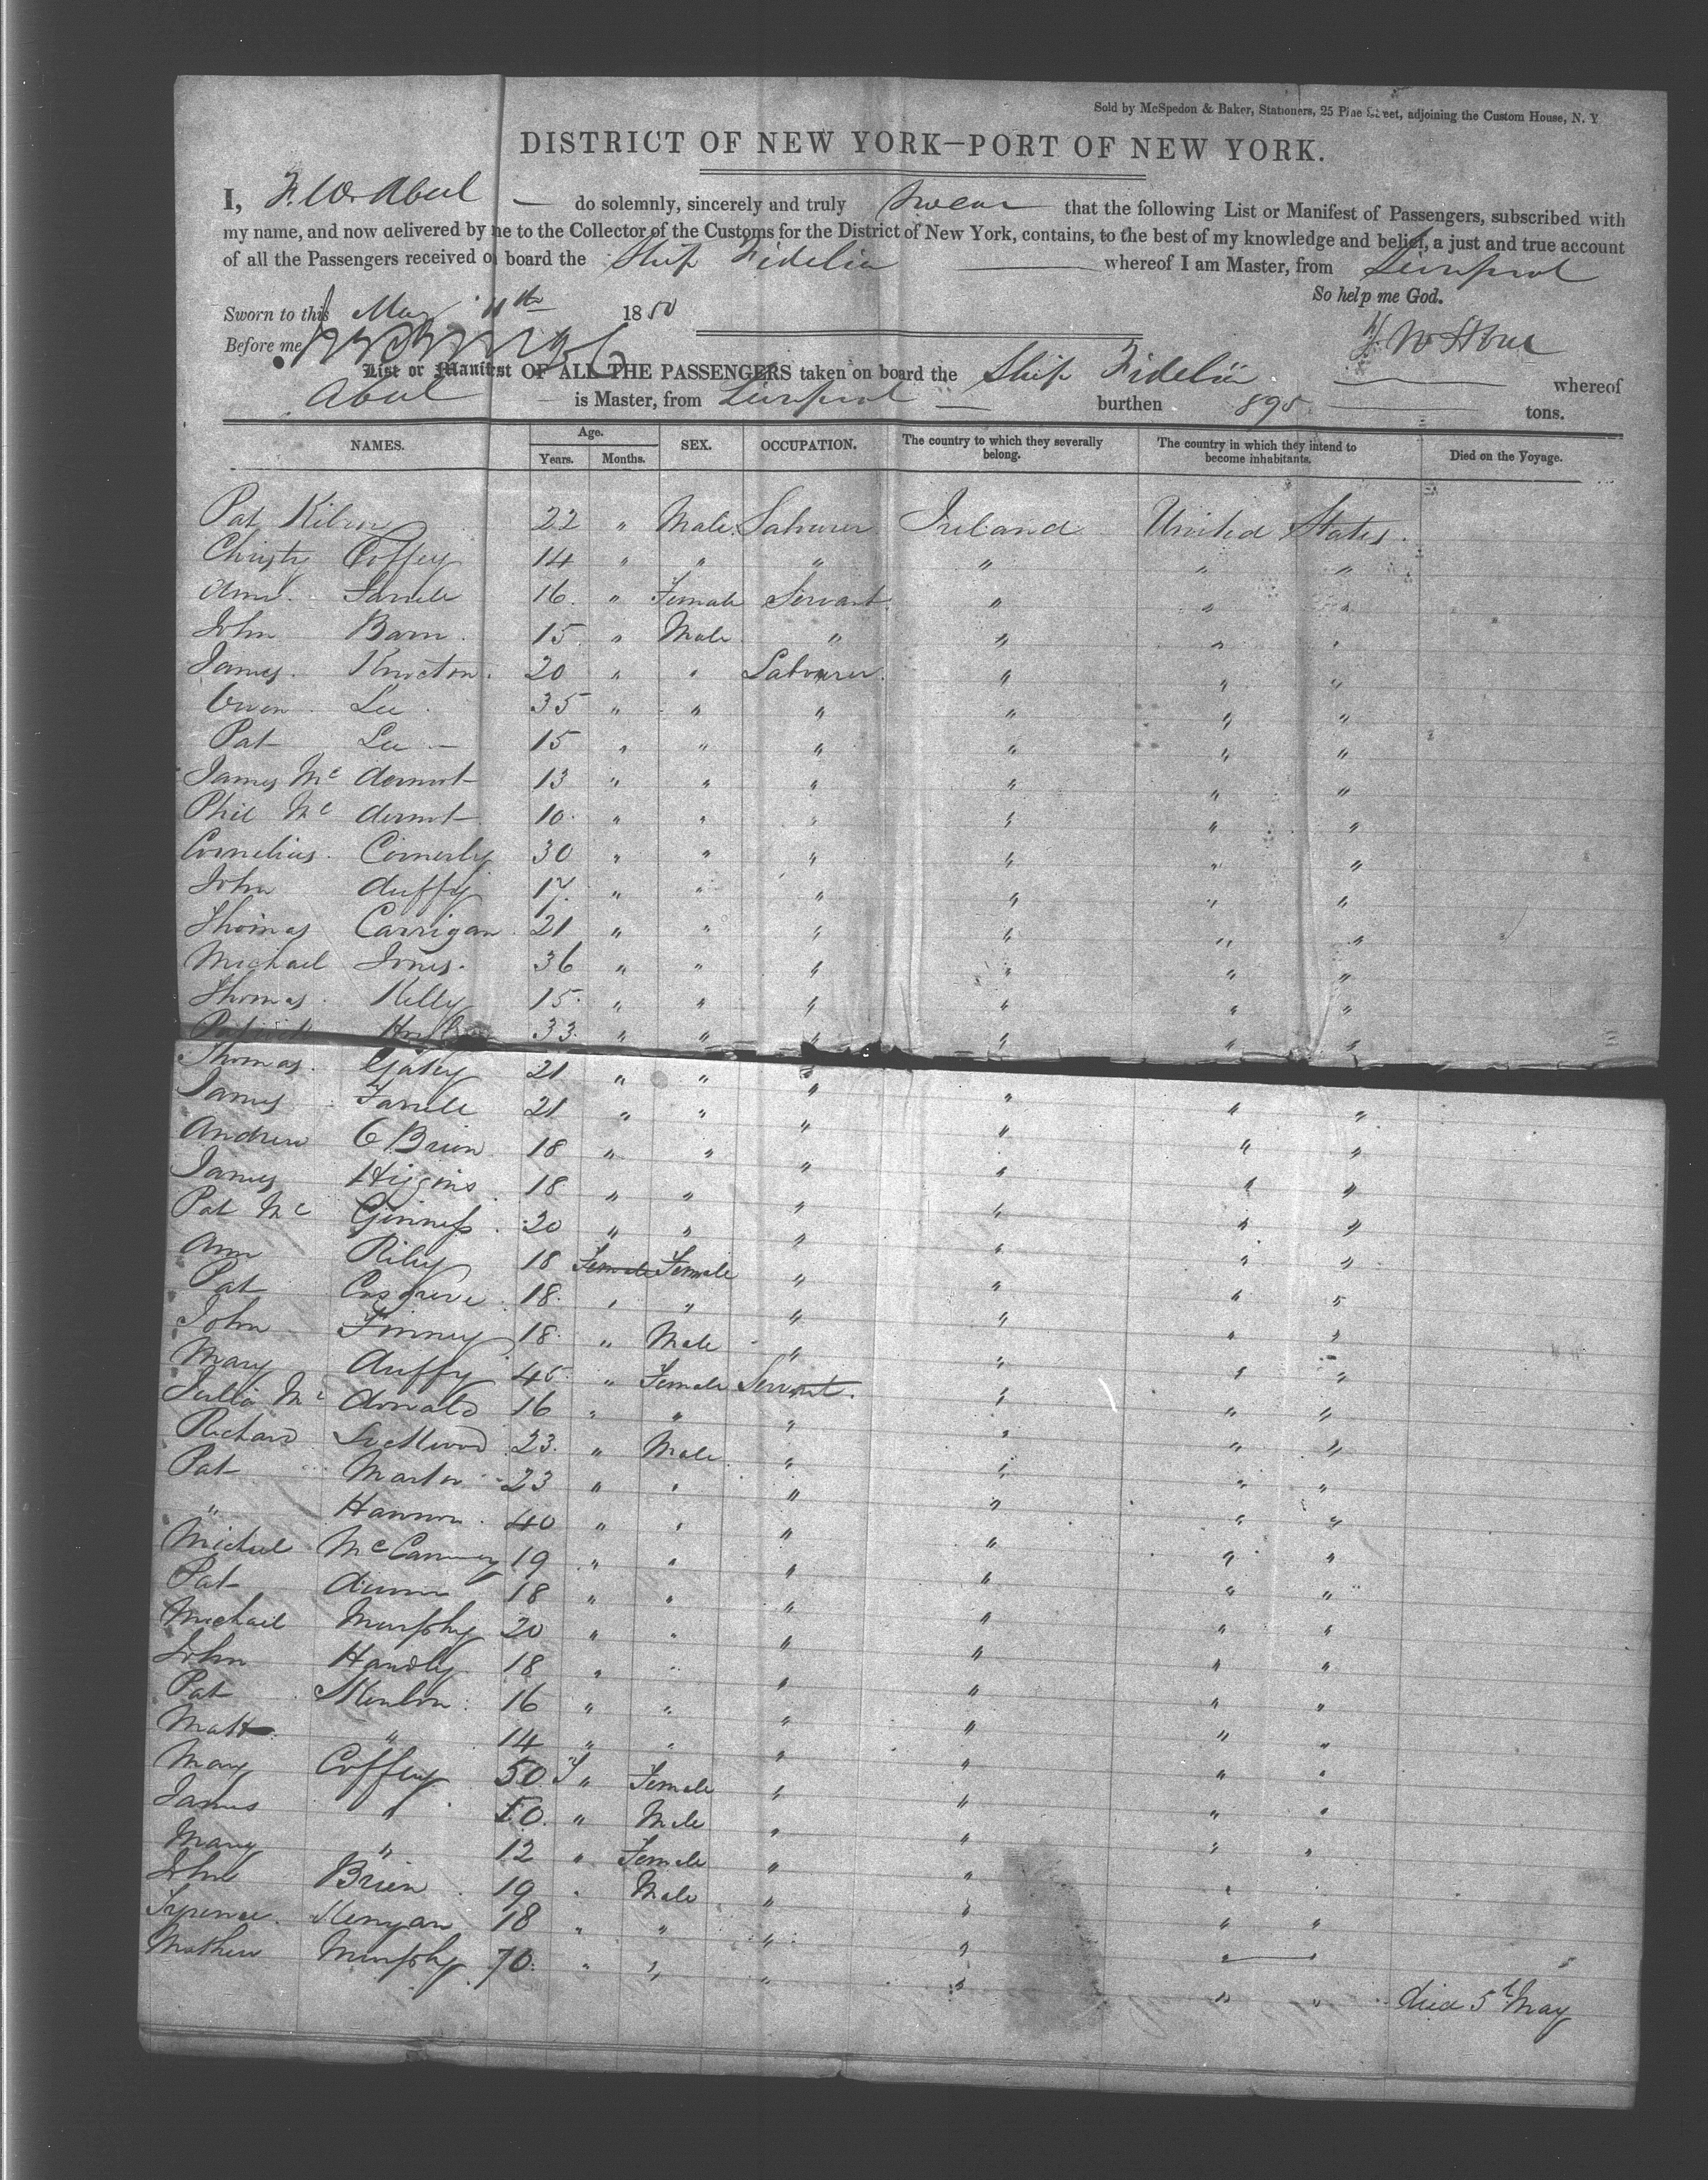 Sold by McSpedon & Baker, Stationers, 25 Pine Street, adjoining the Custom House, N. Y
DISTRICT OF NEW YORK—PORT OF NEW YORK.
I, do solemnly, sincerely and truly swear that the following List or Manifest of Passengers, subscribed with
my name, and now delivered by me to the Collector of the Customs for the District of New York, contains, to the best of my knowledge and belief, a just and true account
of all the Passengers received on board the Ship Fidelia whereof I am Master, from Liverpool
So help me God.
Sworn to this May 11th 1850
Before me
List or Manifest OF ALL THE PASSENGERS taken on board the Ship Fidelia whereof
is Master, from Liverpool burthen 895 tons.
NAMES. Age. Years. Months. SEX. OCCUPATION. The country to which they severally belong. The country in which they intend to become inhabitants. Died on the Voyage.
Pat 22 " Male Labourer Ireland United States.
Christy Coffey 14 " " " " " "
Ann Farrele 16 " Female Servant " " "
John Barn 15 " Male " " " "
James 20 " " Labourer " " "
Owen Lee 35 " " " " " "
Pat Lee 15 " " " " " "
James Mc dermot 13 " " " " " "
Phil Mc dermot 10 " " " " " "
Cornelius Comerly 30 " " " " " "
John duffy 17 " " " " " "
Thomas Carrigan 21 " " " " " "
Michael Jones 36 " " " " " "
Thomas Kelly 15 " " " " " "
33 " " " " " "
Thomas Gatey 21 " " " " " "
James Farrele 21 " " " " " "
Andrew O Brien 18 " " " " " "
James Higgins 18 " " " " " "
Pat Mc Ginness 20 " " " " " "
Ann Riley 18 Female Female " " " "
Pat Cosgreve 18 " " " " " "
John Finney 18 " Male " " " "
Mary duffy 45 " Female Servant " " "
Julia Mc donald 16 " " " " " "
Richard Lockwood 23 " Male " " " "
Pat Martin 23 " " " " " "
" Hannon 40 " " " " " "
Michael 19 " " " " " "
Pat dunn 18 " " " " " "
Michael Murphy 20 " " " " " "
John Handly 18 " " " " " "
Pat 16 " " " " " "
Matt " 14 " " " " " "
Mary Coffey 50 " Female " " " "
James " 50 " Male " " " "
Mary " 12 " Female " " " "
John Brien 19 " Male " " " "
Kenyan 18 " " " " " "
Mathew Murphy 70 " " " " " " died 5th May